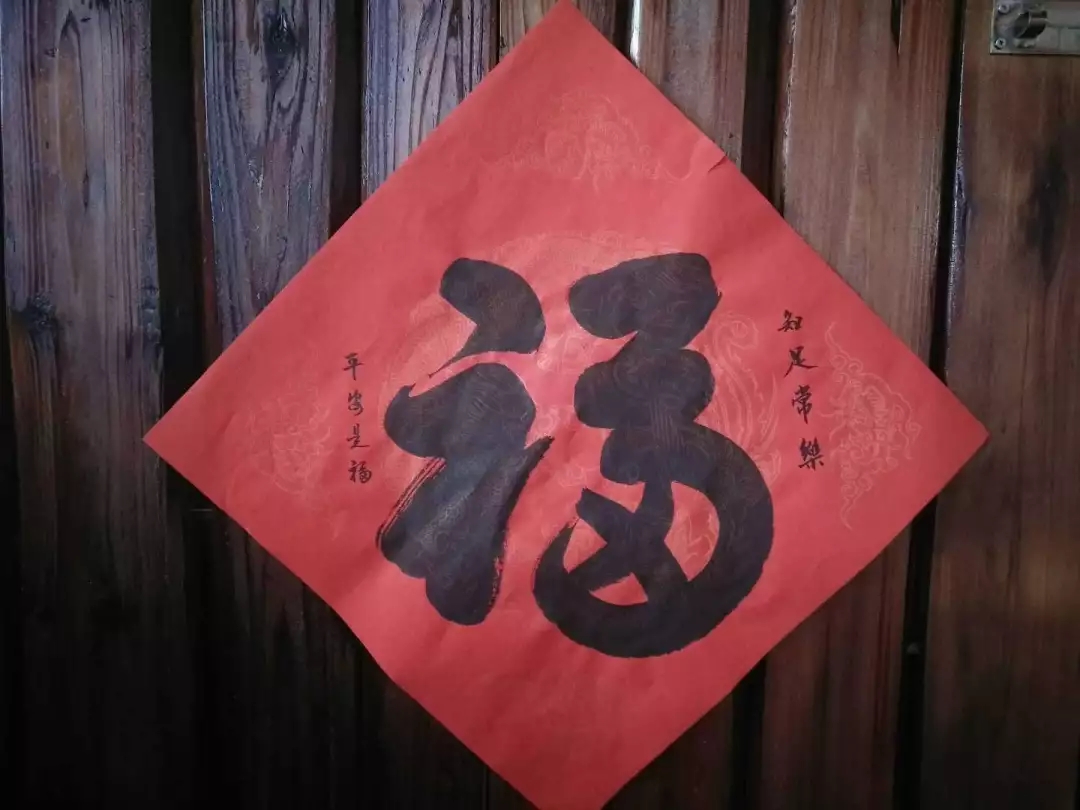 知足常樂
福
平安是福